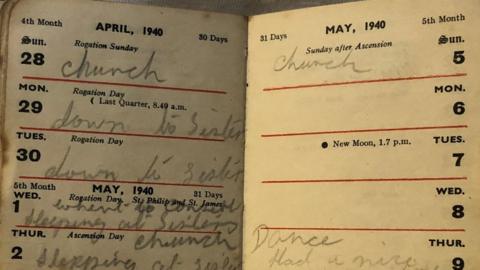 4th Month APRIL, 1940 30 Days
Rogation Sunday
Sun.
28
church
MON. Rogation Day
( Last Quarter, 8.49 a.m.
29
down to Sisters
TUES. Rogation Day
30
down to Sisters
5th Month MAY, 1940 31 Days
WED. Rogation Day. St. Philip and St. James
1
whent to
sleeping at Sisters
THUR. Ascension Day church
2
Sleeping at Sisters
31 Days MAY, 1940 5th Month
Sunday after Ascension
Sun.
5
Church
MON.
6
● New Moon, 1.7 p.m. TUES.
7
WED.
8
Dance
THUR.
9
Had a nice